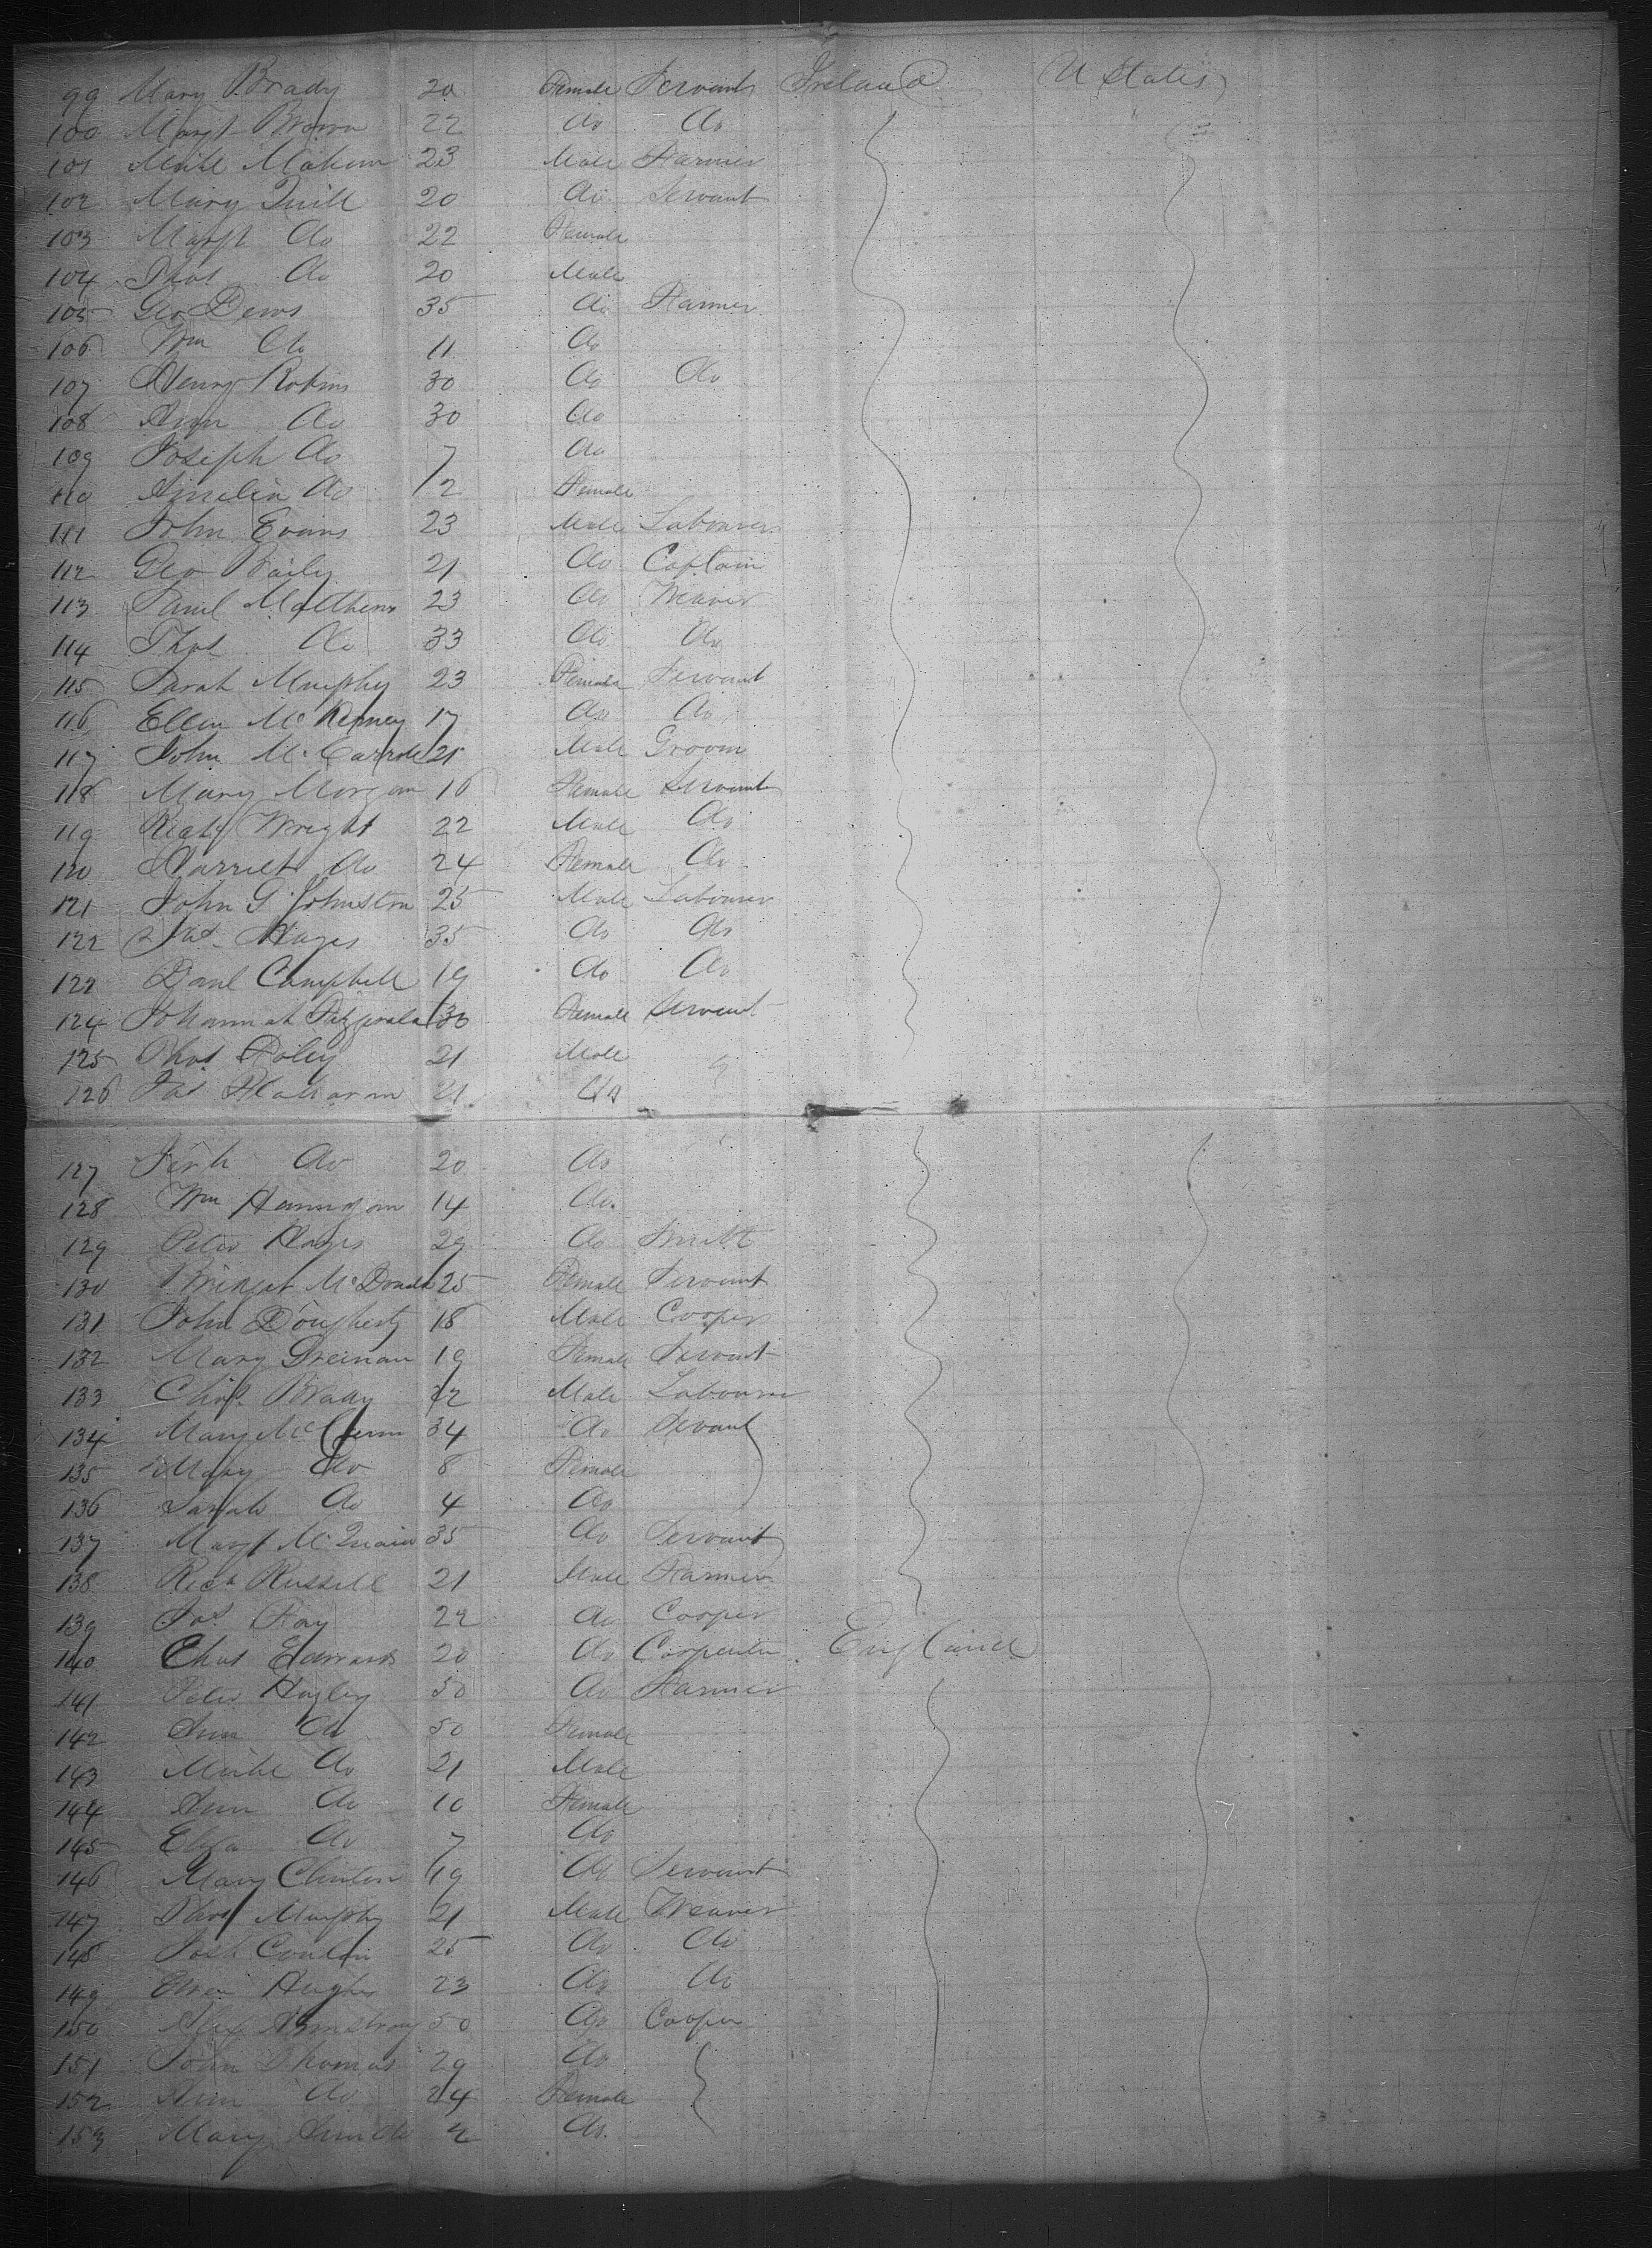 99 Mary Brady 20 Female Servant Ireland U States
100 Margt Brown 22 do do
101 Michl Mahon 23 Male Farmer
102 Mary Quill 20 do Servant
103 Margt do 22 Female
104 Thos do 20 Male
105 Geo Dews 35 do Farmer
106 Wm do 11 do
107 Henry Robins 30 do do
108 Ann do 30 do
109 Joseph do 7 do
110 Amelia do 2 Female
111 John Evans 23 Male Labourer
112 Geo Baily 21 do Captain
113 Saml Matthews 23 do Weaver
114 Thos do 33 do do
115 Sarah Murphy 23 Female Servant
116 Ellen McKenney 17 do do
117 John McCarroll 21 Male Groom
118 Mary Morgan 16 Female Servant
119 Wright 22 Male do
120 Harriet do 24 Female do
121 John G Johnston 25 Male Labourer
122 Jas Hayes 35 do do
122 Danl Campbell 19 do do
124 Johannah Fitzgerald 30 Female Servant
125 Thos Foley 21 Male
126 Jas 21 do
127 do 20 do
128 Wm Hannigan 14 do
129 Peter Hayes 29 do Smith
130 Bridget McDonald 25 Female Servant
131 John Dougherty 18 Male Cooper
132 Mary Greenan 19 Female Servant
133 Chas Brady 22 Male Labourer
134 Mary McGlenn 34 do Servant
135 Mary do 8 Female
136 Sarah do 4 do
137 Margt McQuaid 35 do Servant
138 Richd Russell 21 Male Farmer
139 Jas Fay 22 do Cooper
140 Chas Edwards 20 do Carpenter England
141 Peter Hagley 50 do Farmer
142 Ann do 50 Female
143 Michl do 21 Male
144 Ann do 10 Female
145 Eliza do 7 do
146 Mary Clinton 19 do Servant
147 Thos Murphy 21 Male Weaver
148 Josh Conlin 25 do do
149 Owen Hughes 23 do do
150 Alex Armstrong 50 do Cooper
151 John Thomas 29 do
152 Ann do 24 Female
153 Mary 2 do